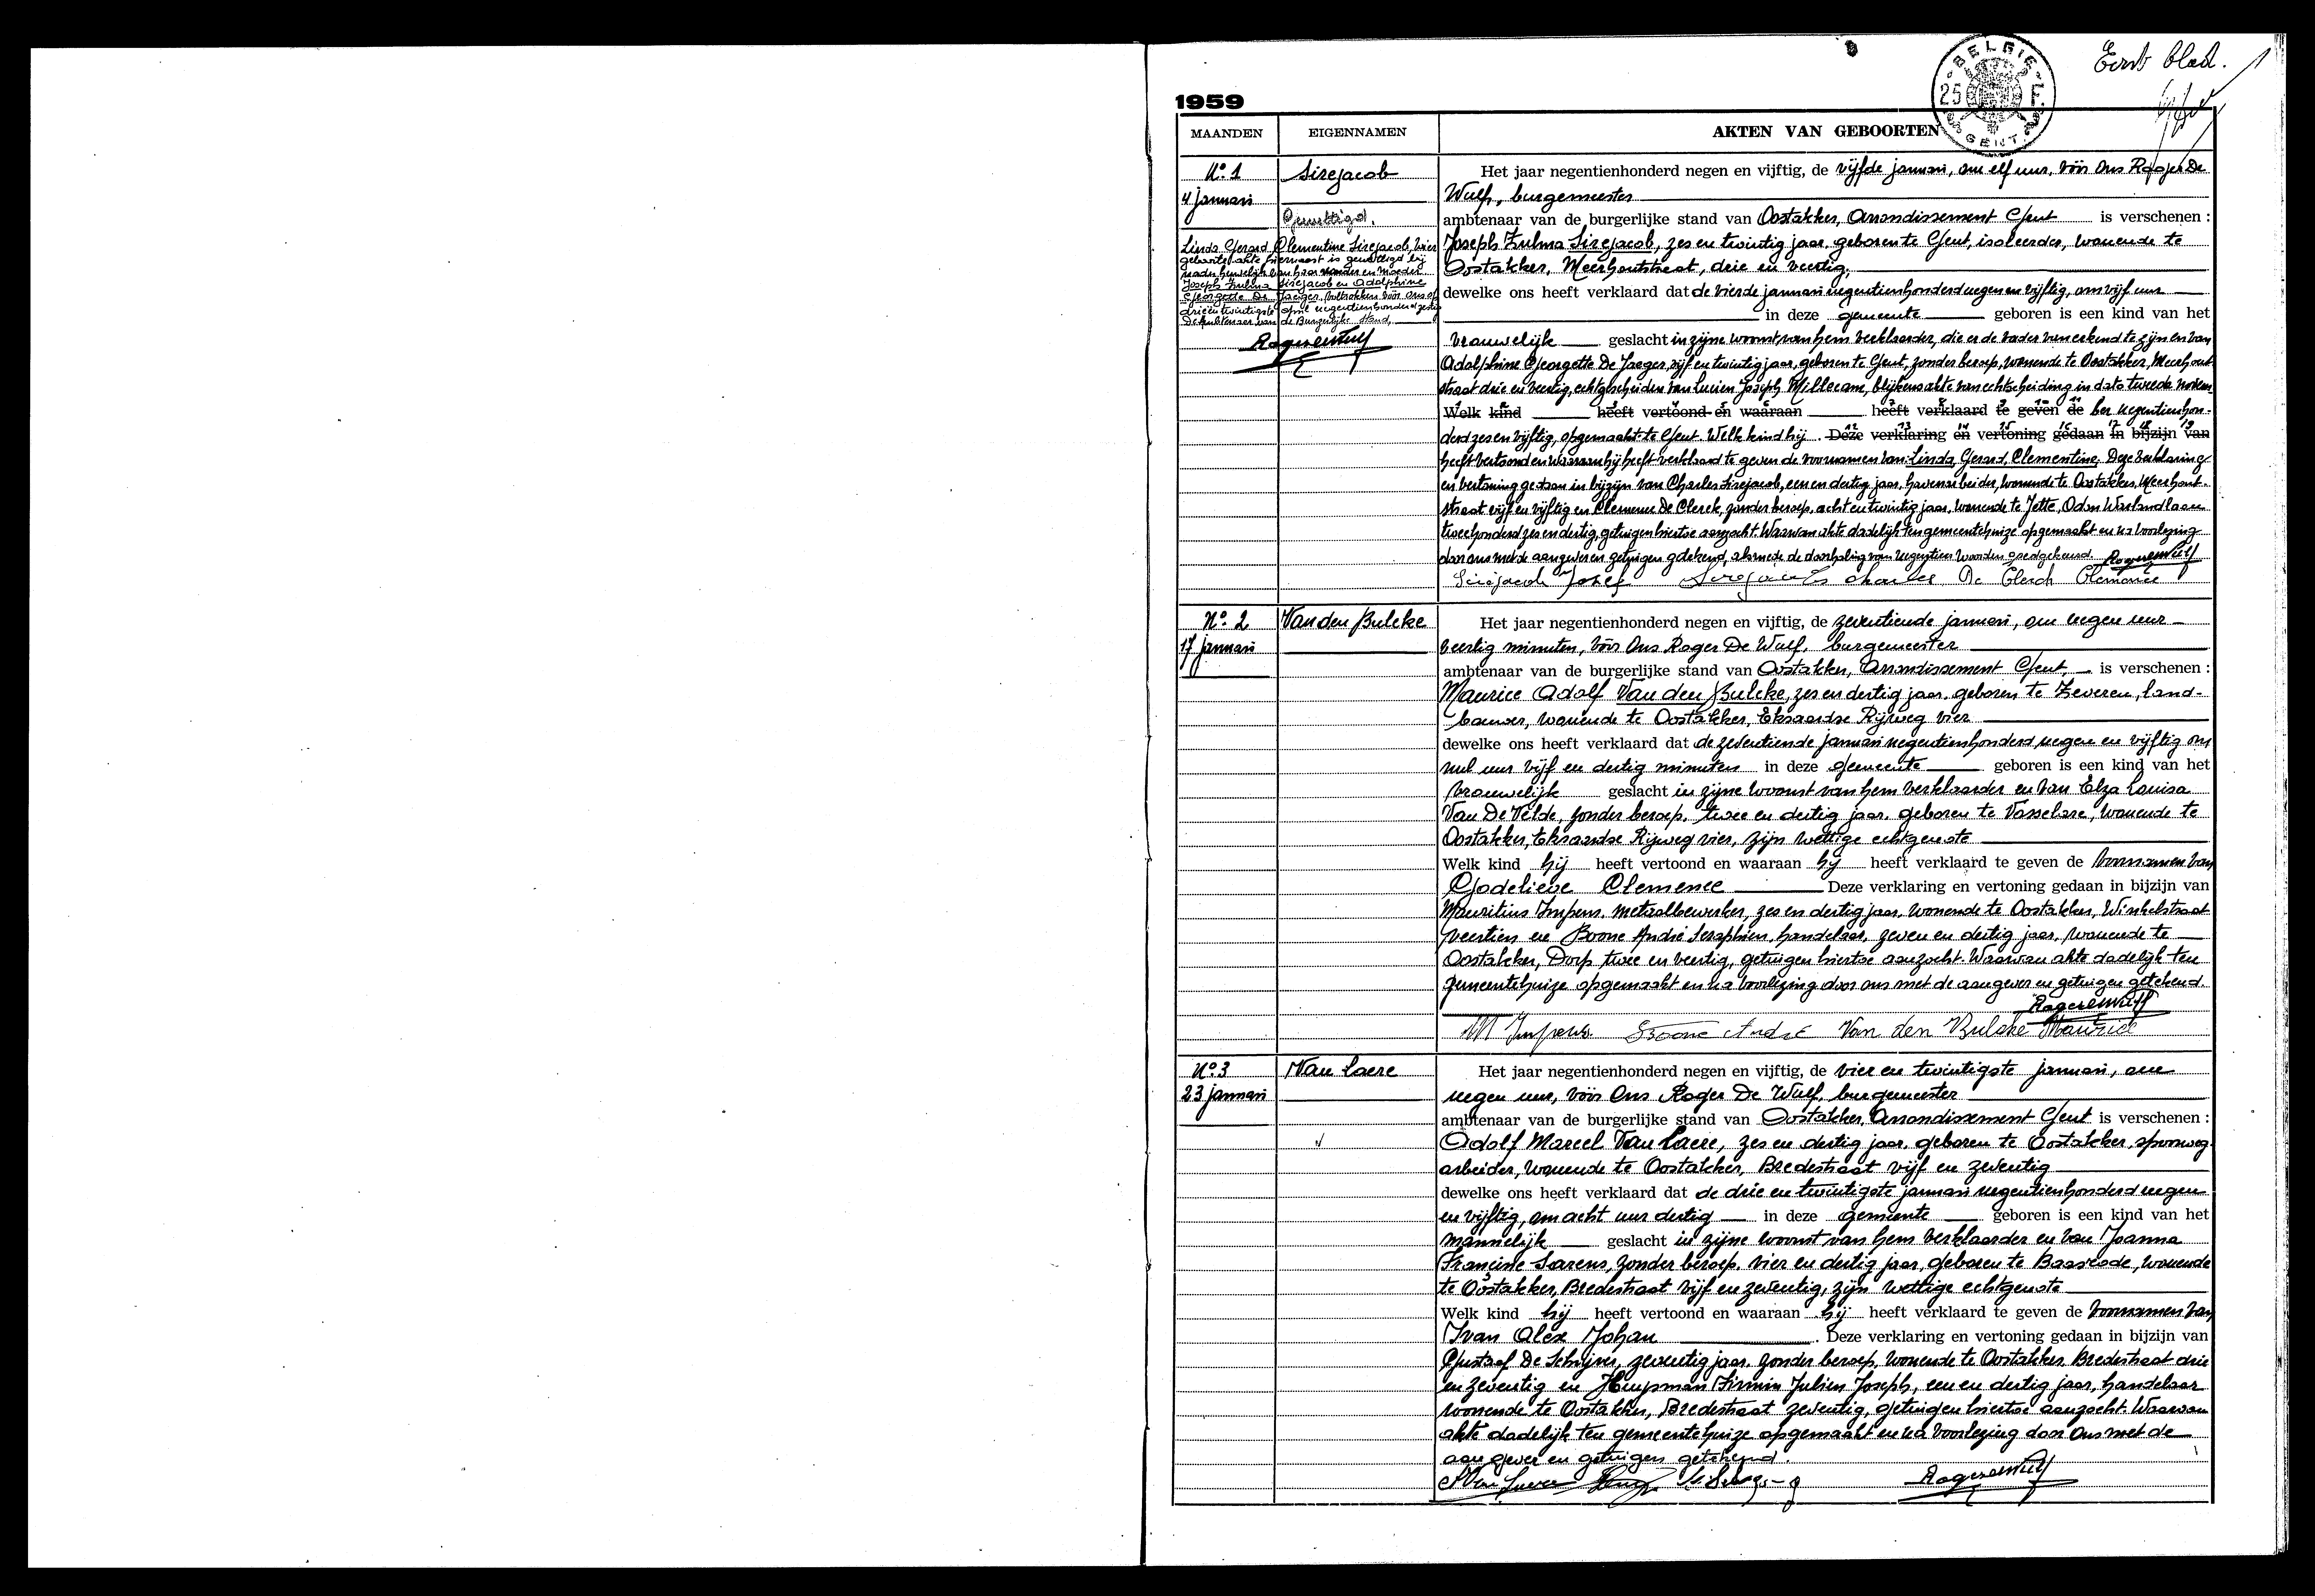 Eerste blad. 1
BELGIE
25 F.
GENT
1959
MAANDEN EIGENNAMEN AKTEN VAN GEBOORTEN
N° 1 Sirejacob Het jaar negentienhonderd negen en vijftig, de vijfde januari, om elf uur, vóór Ons Roger De
4 januari Wulf, burgemeester
Gewettigd. ambtenaar van de burgerlijke stand van Oostakker, Arrondissement Gent is verschenen :
Linda Gerard Clementine Sirejacob, wier
geboorteakte hiernaast is gewettigd bij
nader huwelijk van haar vader en moeder
Joseph Zulma Sirejacob en Adolphine
Georgette De Jaeger, voltrokken vóór ons op
drie en twintigste april negentienhonderd zestig
De Ambtenaar van de Burgerlijke Stand,
Joseph Zulma Sirejacob, zes en twintig jaar, geboren te Gent, isoleerder, wonende te
Oostakker, Meerhoutstraat, drie en veertig,
dewelke ons heeft verklaard dat de vierde januari negentienhonderd negen en vijftig, om vijf uur
in deze gemeente geboren is een kind van het
vrouwelijk geslacht in zijne woonst, van hem verklaarder, die er de vader van erkend te zijn en van
Adolphine Georgette De Jaeger, vijf en twintig jaar, geboren te Gent, zonder beroep, wonende te Oostakker, Meerhout-
straat drie en veertig, echtgescheiden van Lucien Joseph Millecam, blijkens akte van echtscheiding in dato tweede novem-
Welk kind heeft vertoond en waaraan heeft verklaard te geven de ber negentienhon-
derd zes en vijftig, opgemaakt te Gent. Welk kind hij . Deze verklaring en vertoning gedaan in bijzijn van
heeft vertoond en waaraan hij heeft verklaard te geven de voornamen van: Linda, Gerard, Clementine. Deze verklaring
en vertoning gedaan in bijzijn van Charles Sirejacob, een en dertig jaar, havenarbeider, wonende te Oostakker, Meerhout-
straat vijf en vijftig en Clemence De Clerck, zonder beroep, acht en twintig jaar, wonende te Jette, Odon Warlandlaan
tweehonderd zes en dertig, getuigen hiertoe aanzocht. Waarvan akte dadelijk ten gemeentehuize opgemaakt en na voorlezing
door ons met de aangever en getuigen getekend, alsmede de doorhaling van negentien woorden goedgekeurd. Roger De Wulf
Sirejacob Jozef Sirejacob Charles De Clerck Clemence
N° 2 Van den Bulcke Het jaar negentienhonderd negen en vijftig, de zeventiende januari, om negen uur
17 januari veertig minuten, vóór Ons Roger De Wulf, burgemeester
ambtenaar van de burgerlijke stand van Oostakker, Arrondissement Gent, is verschenen :
Maurice Adolf Van den Bulcke, zes en dertig jaar, geboren te Zeveren, land-
bouwer, wonende te Oostakker, Eksaardse Rijweg vier
dewelke ons heeft verklaard dat de zeventiende januari negentienhonderd negen en vijftig om
nul uur vijf en dertig minuten in deze gemeente geboren is een kind van het
vrouwelijk geslacht in zijne woonst van hem verklaarder en van Elza Louisa
Van De Velde, zonder beroep, twee en dertig jaar, geboren te Vosselare, wonende te
Oostakker, Eksaardse Rijweg vier, zijn wettige echtgenote
Welk kind hij heeft vertoond en waaraan hij heeft verklaard te geven de voornamen van
Godelieve Clemence Deze verklaring en vertoning gedaan in bijzijn van
Mauritius Impens, metaalbewerker, zes en dertig jaar, wonende te Oostakker, Winkelstraat
veertien en Boone André Seraphien, handelaar, zeven en dertig jaar, wonende te
Oostakker, Dorp twee en veertig, getuigen hiertoe aanzocht. Waarvan akte dadelijk ten
gemeentehuize opgemaakt en na voorlezing door ons met de aangever en getuigen getekend.
Roger De Wulf
M Impens Boone André Van den Bulcke Maurice
N° 3 Van Laere Het jaar negentienhonderd negen en vijftig, de vier en twintigste januari, om
23 januari negen uur, vóór Ons Roger De Wulf, burgemeester
ambtenaar van de burgerlijke stand van Oostakker, Arrondissement Gent is verschenen :
Adolf Marcel Van Laere, zes en dertig jaar, geboren te Oostakker, spoorweg-
arbeider, wonende te Oostakker, Bredestraat vijf en zeventig
dewelke ons heeft verklaard dat de drie en twintigste januari negentienhonderd negen
en vijftig, om acht uur dertig in deze gemeente geboren is een kind van het
mannelijk geslacht in zijne woonst van hem verklaarder en van Joanna
Francine Sarens, zonder beroep, vier en dertig jaar, geboren te Baasrode, wonende
te Oostakker, Bredestraat vijf en zeventig, zijn wettige echtgenote
Welk kind hij heeft vertoond en waaraan hij heeft verklaard te geven de voornamen van
Ivan Alex Johan . Deze verklaring en vertoning gedaan in bijzijn van
Gustaaf De Schrijver, zeventig jaar, zonder beroep, wonende te Oostakker Bredestraat drie
en zeventig en Huypman Firmin Julien Joseph, een en dertig jaar, handelaar
wonende te Oostakker, Bredestraat zeventig, getuigen hiertoe aanzocht. Waarvan
akte dadelijk ten gemeentehuize opgemaakt en na voorlezing door Ons met de
aangever en getuigen getekend.
Roger De Wulf